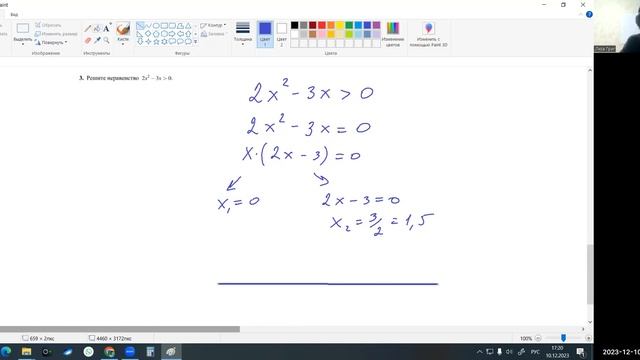 aint
Вид
Выделить
Обрезать
Изменить размер
Повернуть
Изображение
Инструменты
Кисти
Контур
Заливка
Фигуры
Толщина
Цвет 1
Цвет 2
Цвета
Изменение цветов
Изменить с помощью Paint 3D
Лиза Григ
3. Решите неравенство 2x² − 3x > 0.
2x² − 3x > 0
2x² − 3x = 0
x·(2x − 3) = 0
x₁ = 0
2x − 3 = 0
x₂ = 3/2 = 1,5
659 × 2пкс
4460 × 3172пкс
100%
РУС
17:20
10.12.2023
2023-12-10